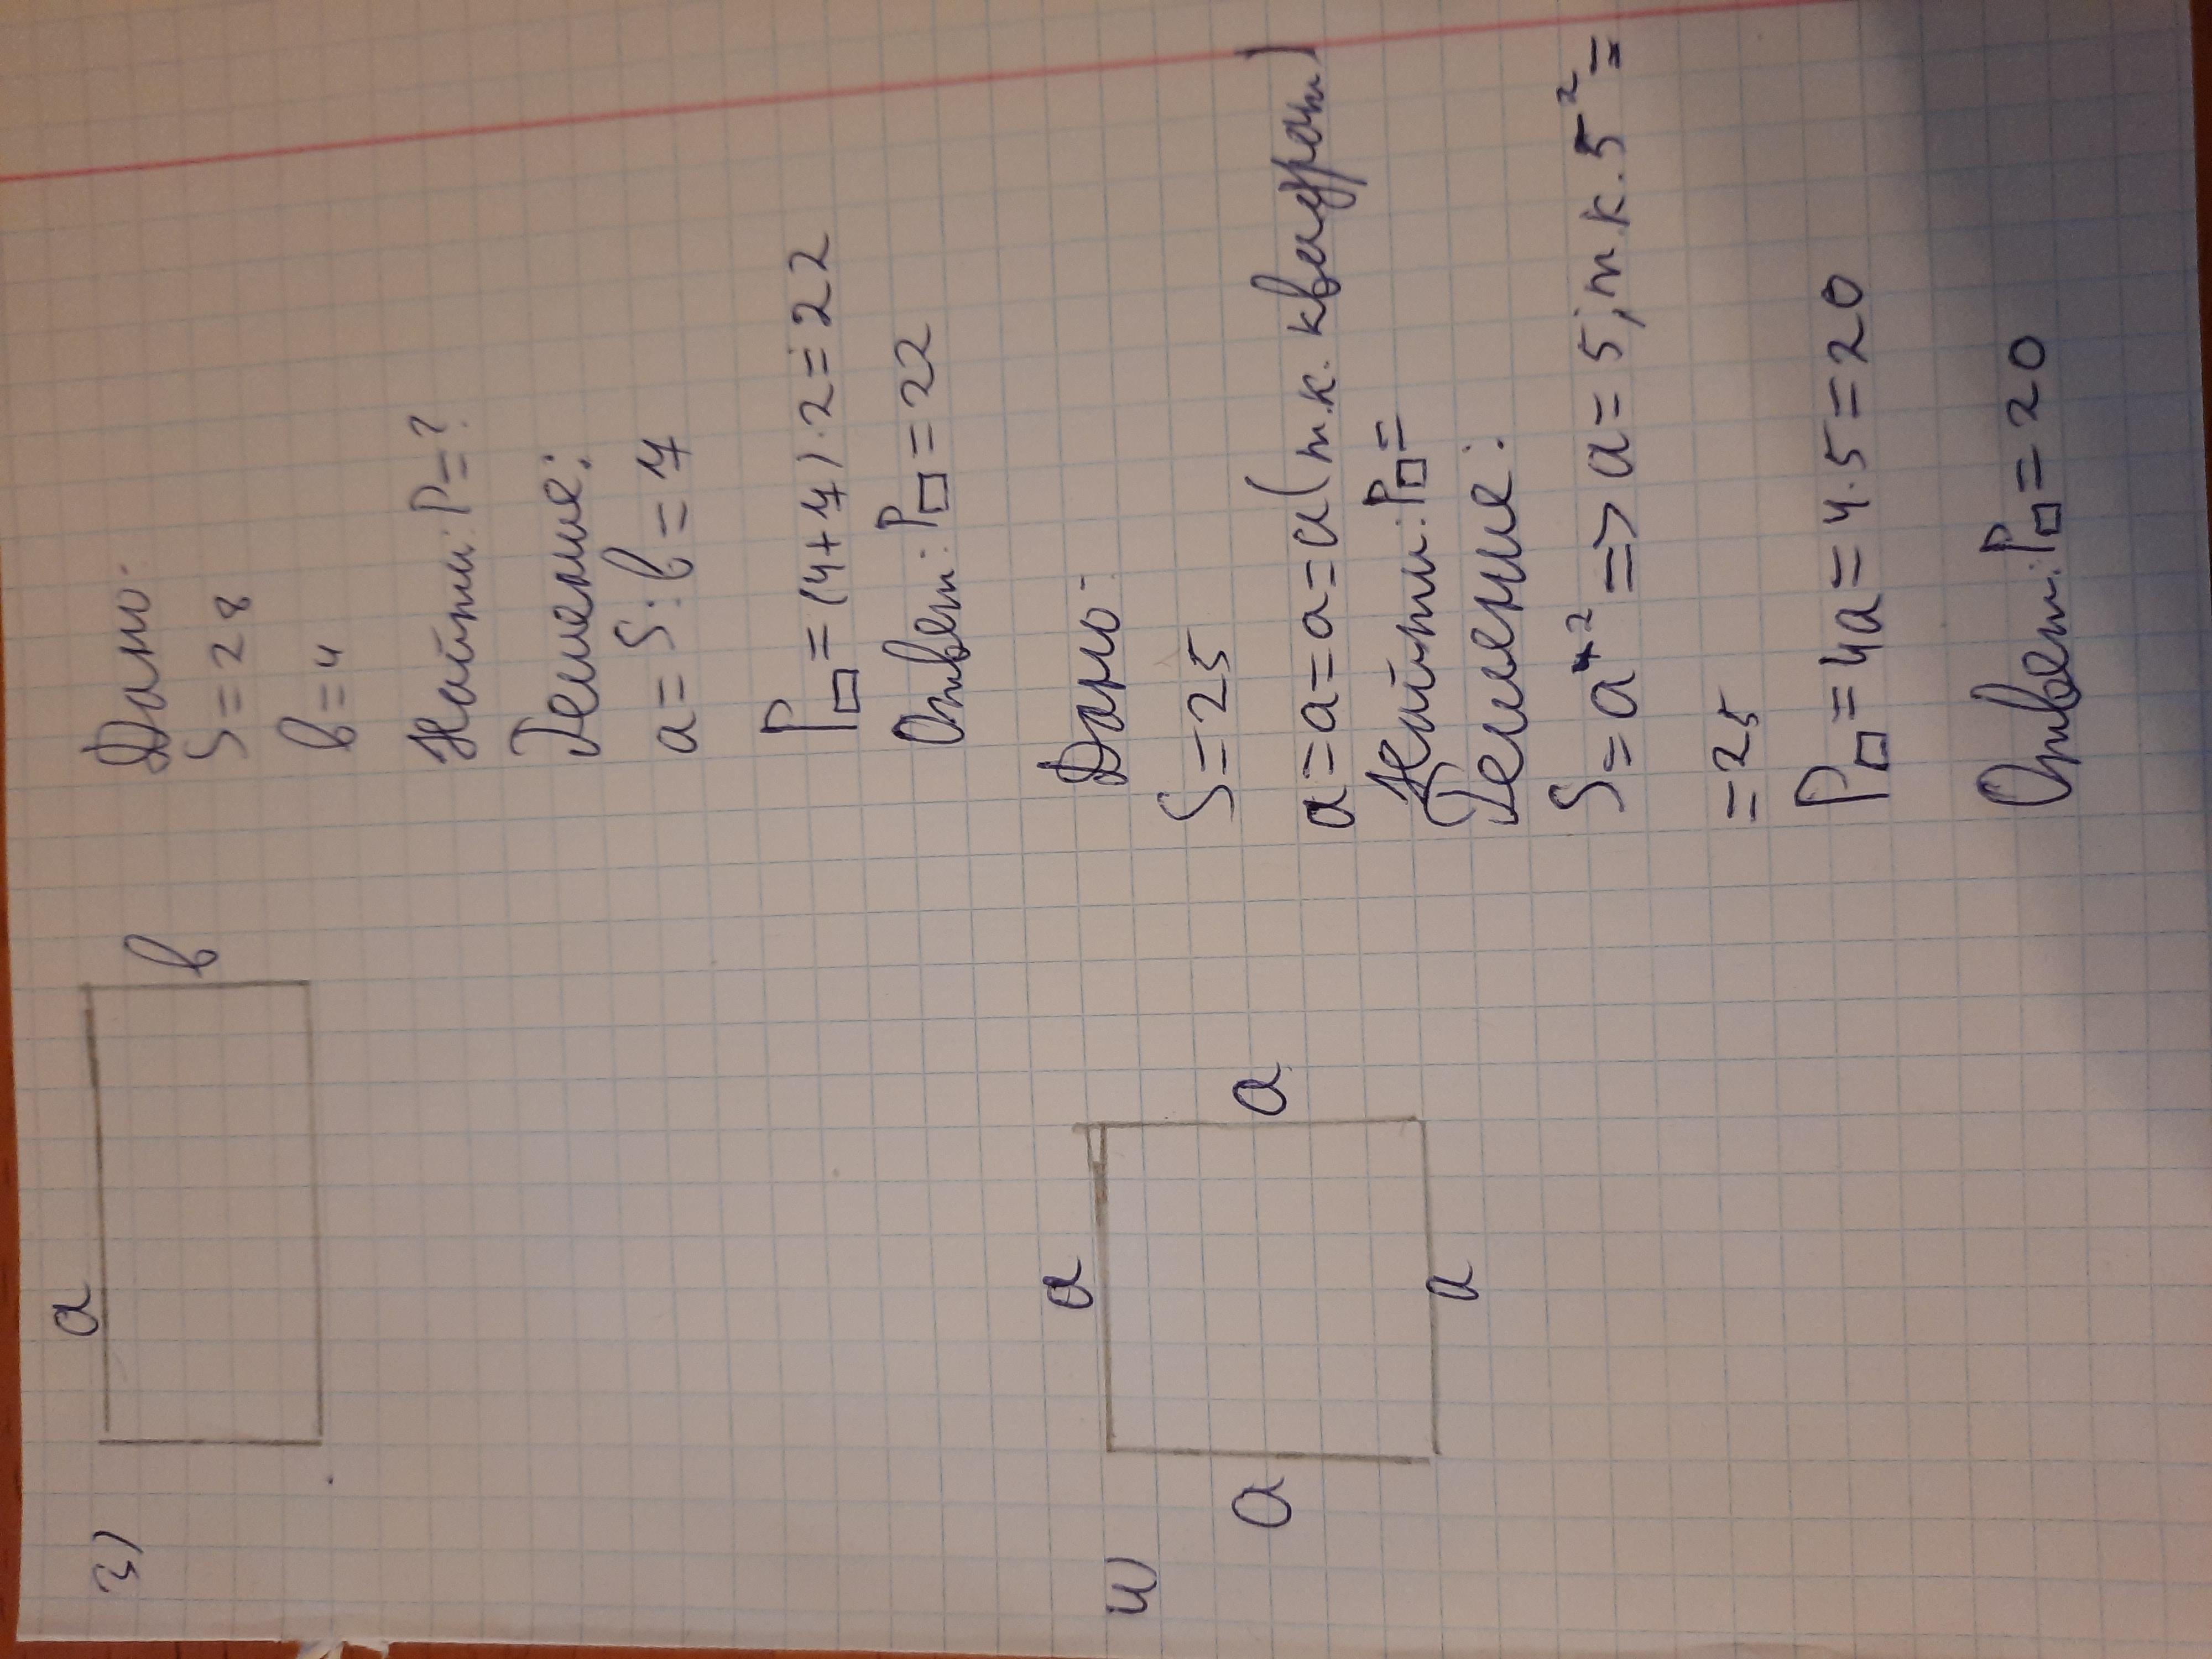 з)
a
в
Дано:
S=28
в=4
Найти: P=?
Решение:
a=S:в=7
P□=(4+7)·2=22
Ответ: P□=22
и)
a
a
a
a
Дано:
S=25
a=a=a=a(т.к. квадрат)
Найти: P□=
Решение:
S=a²=>a=5, т.к. 5²=
=25
P□=4a=4·5=20
Ответ: P□=20